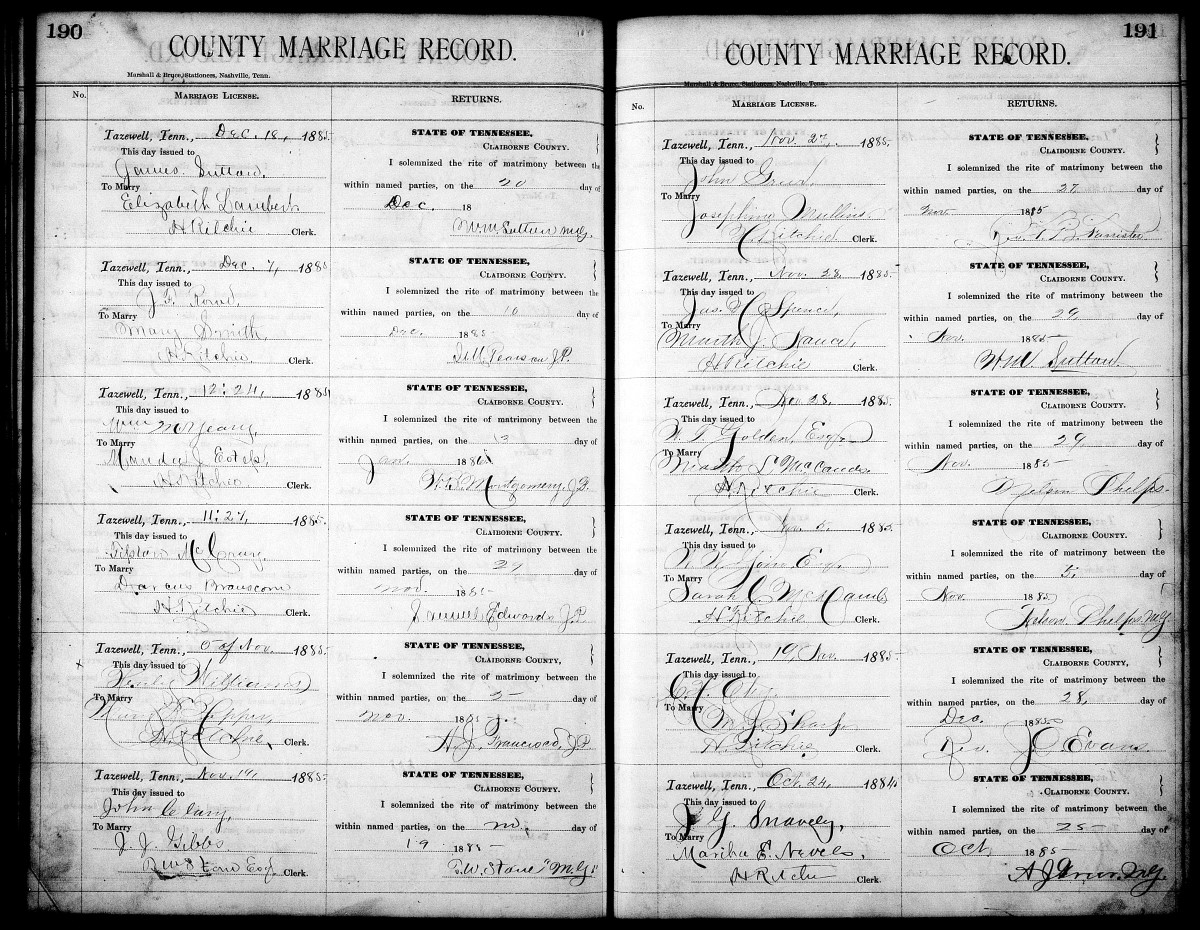 190
COUNTY MARRIAGE RECORD.
Marshall & Bruce, Stationers, Nashville, Tenn.
No. MARRIAGE LICENSE. RETURNS.
Tazewell, Tenn., Dec. 18, 1885.
This day issued to
James Sutton.
To Marry
Elizabeth Lambert
H Ritchie Clerk.
STATE OF TENNESSEE,
CLAIBORNE COUNTY.
I solemnized the rite of matrimony between the
within named parties, on the 20 day of
Dec. 18
Wm Sutton M.G.
Tazewell, Tenn., Dec. 7, 1885
This day issued to
J. F.
To Marry
Mary Smith,
H Ritchie, Clerk.
STATE OF TENNESSEE,
CLAIBORNE COUNTY.
I solemnized the rite of matrimony between the
within named parties, on the 10 day of
Dec. 1885
Pearson J.P.
Tazewell, Tenn., 12:24, 1885
This day issued to
To Marry
J.
H Ritchie Clerk.
STATE OF TENNESSEE,
CLAIBORNE COUNTY.
I solemnized the rite of matrimony between the
within named parties, on the 13 day of
Jan. 1886
Montgomery, J.P.
Tazewell, Tenn., 11:27, 1885.
This day issued to
To Marry
Branscom
H Ritchie Clerk.
STATE OF TENNESSEE,
CLAIBORNE COUNTY.
I solemnized the rite of matrimony between the
within named parties, on the 29 day of
Nov. 1885
Samuel Edwards J.P.
x
Tazewell, Tenn., 5 of Nov. 1885
This day issued to
Williams
To Marry
H Ritchie, Clerk.
STATE OF TENNESSEE,
CLAIBORNE COUNTY,
I solemnized the rite of matrimony between the
within named parties, on the 5 day of
Nov. 188
A. J. Francisco, J.P.
Tazewell, Tenn., Nov. 19, 1885
This day issued to
John Clary,
To Marry
J. J. Gibbs
Esq. Clerk.
STATE OF TENNESSEE,
CLAIBORNE COUNTY.
I solemnized the rite of matrimony between the
within named parties, on the day of
19 1885
Stone "M.G."
191
COUNTY MARRIAGE RECORD.
Marshall & Bruce, Stationers, Nashville, Tenn.
No. MARRIAGE LICENSE. RETURNS.
Tazewell, Tenn., Nov. 27, 1885.
This day issued to
John
To Marry
Josephine Mullins.
H Ritchie Clerk.
STATE OF TENNESSEE,
CLAIBORNE COUNTY.
I solemnized the rite of matrimony between the
within named parties, on the 27 day of
Nov. 1885
Rev.
Tazewell, Tenn., Nov. 28, 1885
This day issued to
Jas. Spencer,
To Marry
J.
H Ritchie Clerk.
STATE OF TENNESSEE,
CLAIBORNE COUNTY.
I solemnized the rite of matrimony between the
within named parties, on the 29, day of
Nov. 1885
Wm Sutton.
Tazewell, Tenn., Nov. 28, 1885.
This day issued to
Golden, Esq.
To Marry
H Ritchie Clerk.
STATE OF TENNESSEE,
CLAIBORNE COUNTY.
I solemnized the rite of matrimony between the
within named parties, on the 29 day of
Nov. 1885
Nelson Phelps.
Tazewell, Tenn., Nov. 5, 1885.
This day issued to
Esq.
To Marry
Sarah C.
H Ritchie Clerk.
STATE OF TENNESSEE,
CLAIBORNE COUNTY.
I solemnized the rite of matrimony between the
within named parties, on the 5, day of
Nov. 1885
Nelson Phelps M.G.
Tazewell, Tenn., 19, Nov. 1885
This day issued to
To Marry
Sharp
H. Ritchie Clerk.
STATE OF TENNESSEE,
CLAIBORNE COUNTY.
I solemnized the rite of matrimony between the
within named parties, on the 28, day of
Dec. 1885
Rev. J. C. Evans.
Tazewell, Tenn., Oct. 24, 188
This day issued to
Snavely,
To Marry
Martha E. Nevels,
H Ritchie Clerk.
STATE OF TENNESSEE,
CLAIBORNE COUNTY.
I solemnized the rite of matrimony between the
within named parties, on the 25 day of
Oct. 1885
A. J. M.G.